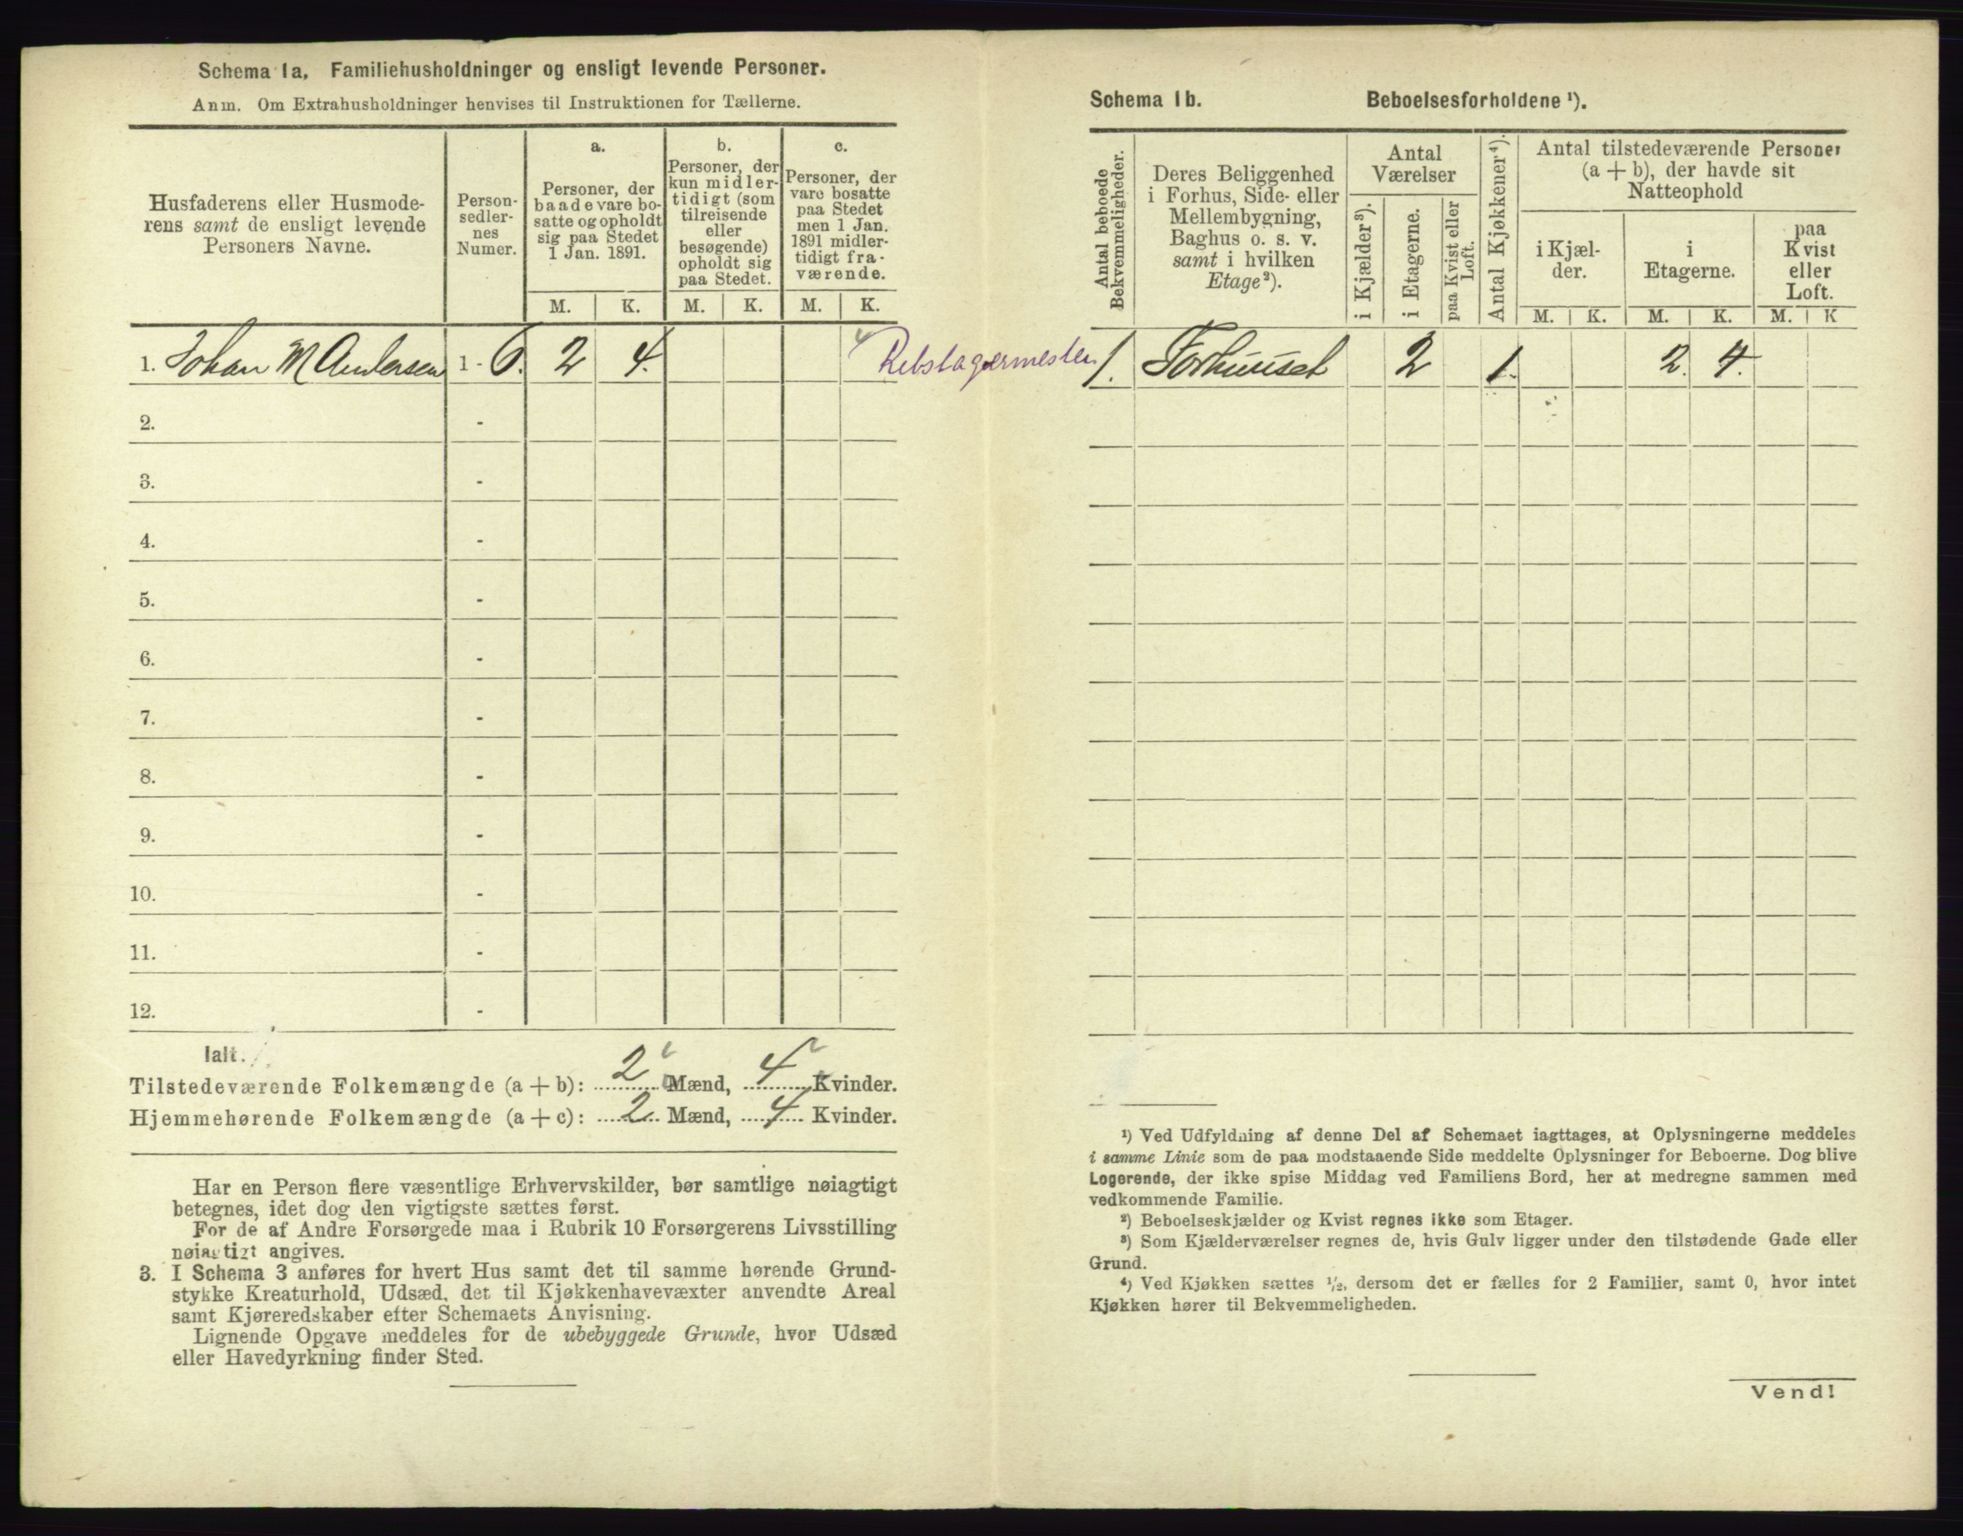 Schema 1a. Familiehusholdninger og ensligt levende Personer.
Anm. Om Extrahusholdninger henvises til Instruktionen for Tællerne.
Husfaderens eller Husmoderens samt de ensligt levende Personers Navne.
Person-
sedler-
nes
Numer.
a.
Personer, der
baade vare bo-
satte og opholdt
sig paa Stedet
1 Jan. 1891.
b.
Personer, der
kun midler-
tidigt (som
tilreisende
eller
besøgende)
opholdt sig
paa Stedet.
c.
Personer, der
vare bosatte
paa Stedet
men 1 Jan.
1891 midler-
tidigt fra-
værende.
M. K. M. K. M. K.
1. Johan M Andersen 1 - 6. 2 4. Rebslagermester
2. -
3. -
4. -
5. -
6. -
7. -
8. -
9. -
10. -
11. -
12. -
Ialt.
Tilstedeværende Folkemængde (a + b): 2 Mænd, 4 Kvinder.
Hjemmehørende Folkemængde (a + c): 2 Mænd, 4 Kvinder.
Har en Person flere væsentlige Erhvervskilder, bør samtlige nøiagtigt
betegnes, idet dog den vigtigste sættes først.
For de af Andre Forsørgede maa i Rubrik 10 Forsørgerens Livsstilling
nøiagtigt angives.
3. I Schema 3 anføres for hvert Hus samt det til samme hørende Grund-
stykke Kreaturhold, Udsæd, det til Kjøkkenhavevæxter anvendte Areal
samt Kjøreredskaber efter Schemaets Anvisning.
Lignende Opgave meddeles for de ubebyggede Grunde, hvor Udsæd
eller Havedyrkning finder Sted.
Schema 1b. Beboelsesforholdene ¹).
Antal beboede
Bekvemmeligheder.
Deres Beliggenhed
i Forhus, Side- eller
Mellembygning,
Baghus o. s. v.
samt i hvilken
Etage²).
Antal
Værelser
i Kjælder³).
i Etagerne.
paa Kvist eller
Loft.
Antal Kjøkkener⁴).
Antal tilstedeværende Personer
(a + b), der havde sit
Natteophold
i Kjæl-
der.
i
Etagerne.
paa
Kvist
eller
Loft.
M. K. M. K. M. K
1. Forhuuset 2 1. 2. 4.
¹) Ved Udfyldning af denne Del af Schemaet iagttages, at Oplysningerne meddeles
i samme Linie som de paa modstaaende Side meddelte Oplysninger for Beboerne. Dog blive
Logerende, der ikke spise Middag ved Familiens Bord, her at medregne sammen med
vedkommende Familie.
²) Beboelseskjælder og Kvist regnes ikke som Etager.
³) Som Kjælderværelser regnes de, hvis Gulv ligger under den tilstødende Gade eller
Grund.
⁴) Ved Kjøkken sættes ½, dersom det er fælles for 2 Familier, samt 0, hvor intet
Kjøkken hører til Bekvemmeligheden.
Vend!